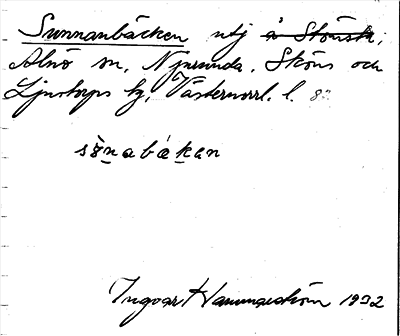 Sunnanbäcken utj å Skönsk,
Alnö sn, Njurunda, Sköns och
Ljustorps tg, Västernorrl. l. 82
sönabäkan
Ingvar Hammarström 1932